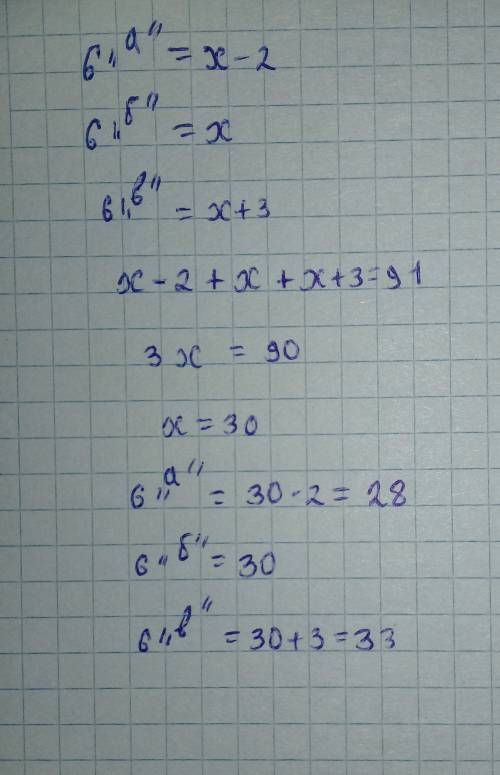 6 „а" = х - 2
6 „б" = х
6 „в" = х + 3
х - 2 + х + х + 3 = 91
3х = 90
х = 30
6 „а" = 30 - 2 = 28
6 „б" = 30
6 „в" = 30 + 3 = 33